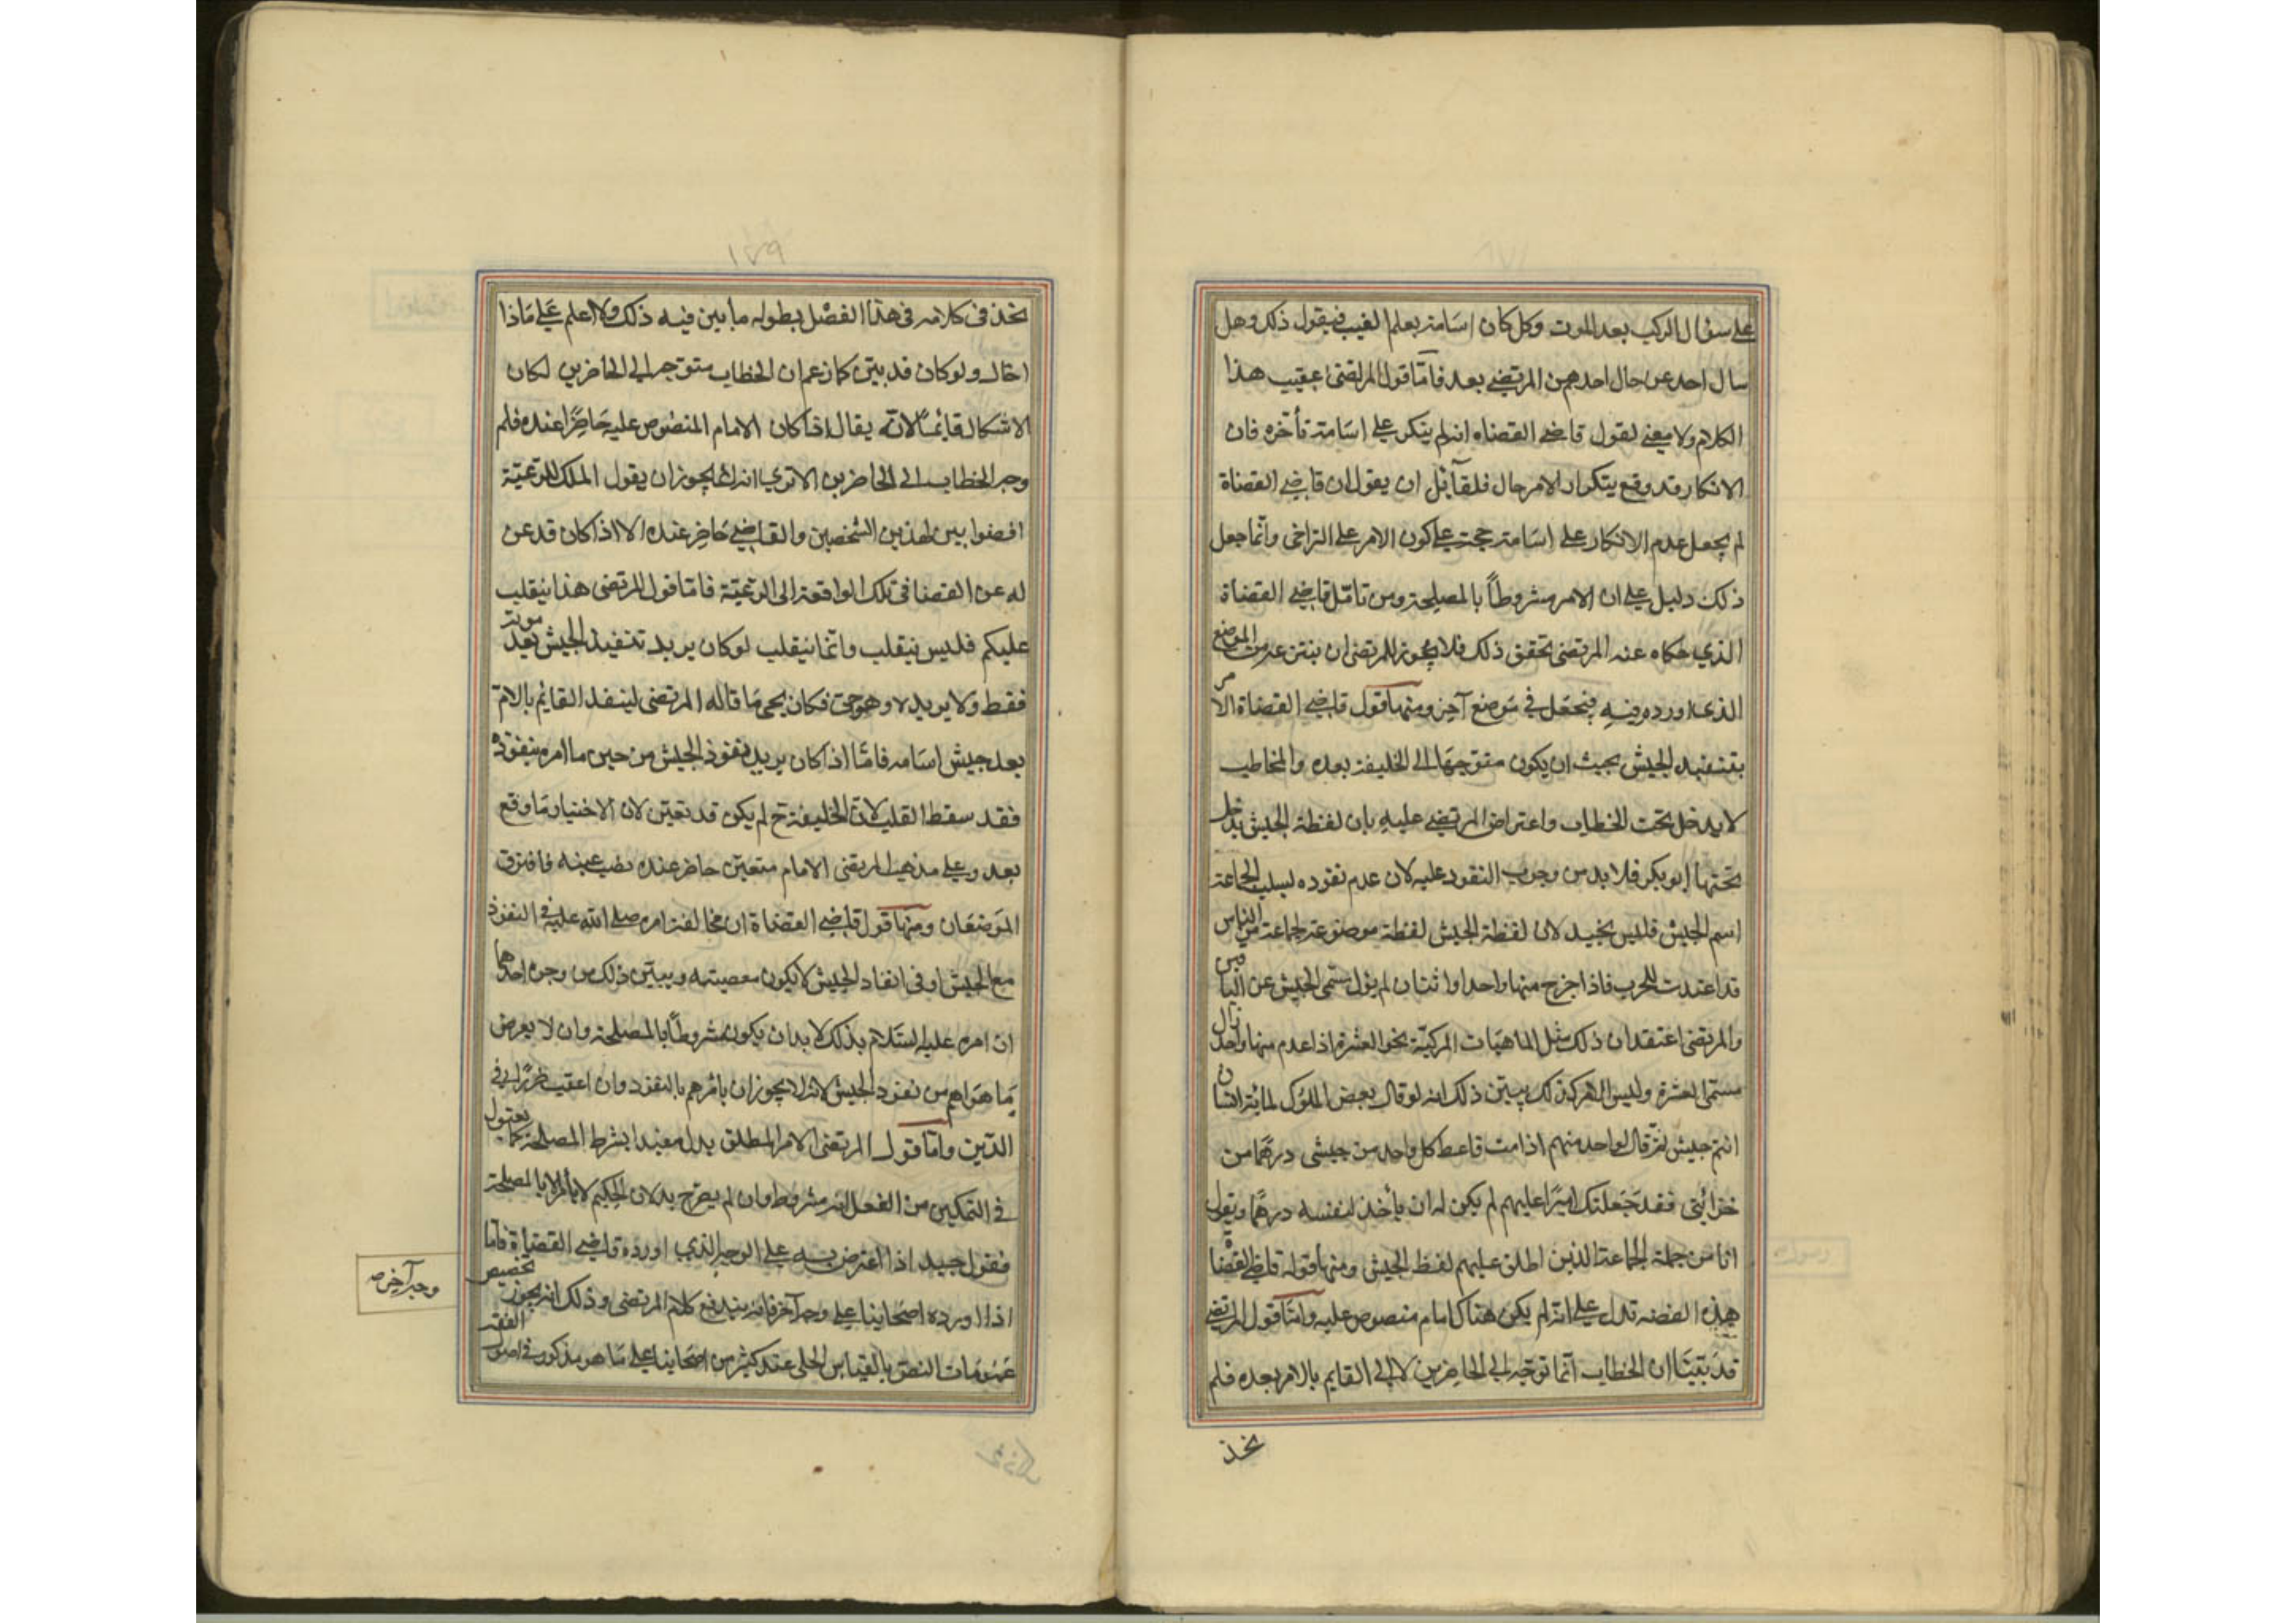 على سؤال الركب بعد الموت وكل كان اسامة يعلم الغيب فيقول ذلك وهل
سال احد عن حال احدهم من المرتضى بعد فاما قول المرتضى عقيب هذا
الكلام ولا معنى لقول قاضى القضاه انه لم ينكر على اسامة تأخره فان
الانكار قد وقع بتكرار الامر حال فلقائل ان يقول ان قاضى القضاة
لم يجعل عدم الانكار على اسامة حجة على كون الامر على التراخى وانما جعل
ذلك دليل على ان الامر مشروطاً بالمصلحة ومن تامل قاضى القضاة
الذي حكاه عنه المرتضى تحقق ذلك فلا يجوز للمرتضى ان ينتزعه من الموضع
الذى اورده فيه فيجعل في موضع آخر ومنها قول قاضى القضاة الامر
بتنفيد الجيش يجيب ان يكون متوجها الى الخليفة بعده والمخاطب
لا يدخل تحت الخطاب واعتراض المرتضى عليه بان لفظة الجيش يدخل
تحتها ابو بكر فلا بد من وجوب النفود عليه لان عدم نفوده لسلب الجاعة
اسم الجيش فليس بجيد لان لفظة الجيش لفظة موضوعة لجماعة من الناس
قد اعتدت للحرب فاذا خرج منها واحد او اثنان لم يزل مستمى الجيش عن الباقين
والمرتضى اعتقد ان ذلك مثل الماهيات المركبة نحو العشرة اذا عدم منها واحد زال
مسمى العشرة وليس الامر كذلك يبين ذلك انه لو قال بعض الملوك لمائة انسان
انتم جيش ثم قال لواحد منهم اذا مت فاعط كل واحد من جيشى درهما من
خزائنى فقد جعلتك اميرا عليهم لم يكن له ان يأخذ لنفسه درهما ويقول
انا من جملة الجماعة الذين اطلق عليهم لفظ الجيش ومنها قوله قاضى القضاة
هذه القصه تدل على انه لم يكن هناك امام منصوص عليه واما قول المرتضى
قد بينا ان الخطاب انما توجه الى الحاضرين لا الى القايم بالامر بعده فلم
نجذ
١٧٩
نجذ فى كلامه فى هذا الفصل بطوله ما بين فيه ذلك ولا اعلم على ماذا
احال ولو كان قد بين كما زعم ان الخطاب متوجه الى الحاضرين لكان
الاشكال قائما لانه يقال اذا كان الامام المنصوص عليه حاضرا عنده فلم
وجه الخطاب الى الحاضرين الا ترى انه لا يجوز ان يقول الملك للرعية
اقضوا بين هذين الشخصين والقاضى حاضر عنده الا اذا كان قد عن
له عن القضا فى تلك الواقعة الى الرعية فاما قول المرتضى هذا ينقلب
عليكم فليس ينقلب وانما ينقلب لو كان يريد تنفيذ الجيش بعد موته
فقط ولا يريده وهو حى فكان يجى ما قاله المرتضى لينفذ القائم بالامر
بعد جيش اسامه فاما اذا كان يريد نفوذ الجيش من حين ما امره بنفوذه
فقد سقط القلب لان الخليفة ح لم يكن قد تعين لان الاختيار ما وقع
بعد وعلى مذهب المرتضى الامام متعين حاضر عنده نصب عينه فافترق
الموضعان ومنها قول قاضى القضاة ان مخالفة امره صلى الله عليه فى النفوذ
مع الجيش او فى انفاد الجيش لا يكون معصيته ويبين ذلك من وجوه احدهما
ان امره عليه السلام بذلك لابد ان يكون مشروطا بالمصلحة وان لا يعرض
ما هو اهم من نفود الجيش لانه لا يجوز ان يامرهم بالنفود وان اعقب ضررا فى
الدين واما قول المرتضى الامر المطلق يدل معندا بشرط المصلحة كما يقول
في التمكين من الفعل انه مشروط وان لم يصرح به لان الحكيم لا يأمر الا بالمصلحة
فقول جيد اذا اعترض به على الوجه الذي اورده قاضى القضاة فاما
اذا اورده اصحابنا على وجه آخر فانه يندفع كلام المرتضى وذلك انه يجوز تخصيص
عمومات النصوص بالقياس الجلى عند كثير من اصحابنا على ما هو مذكور فى اصول الفقه
وجه آخر صه